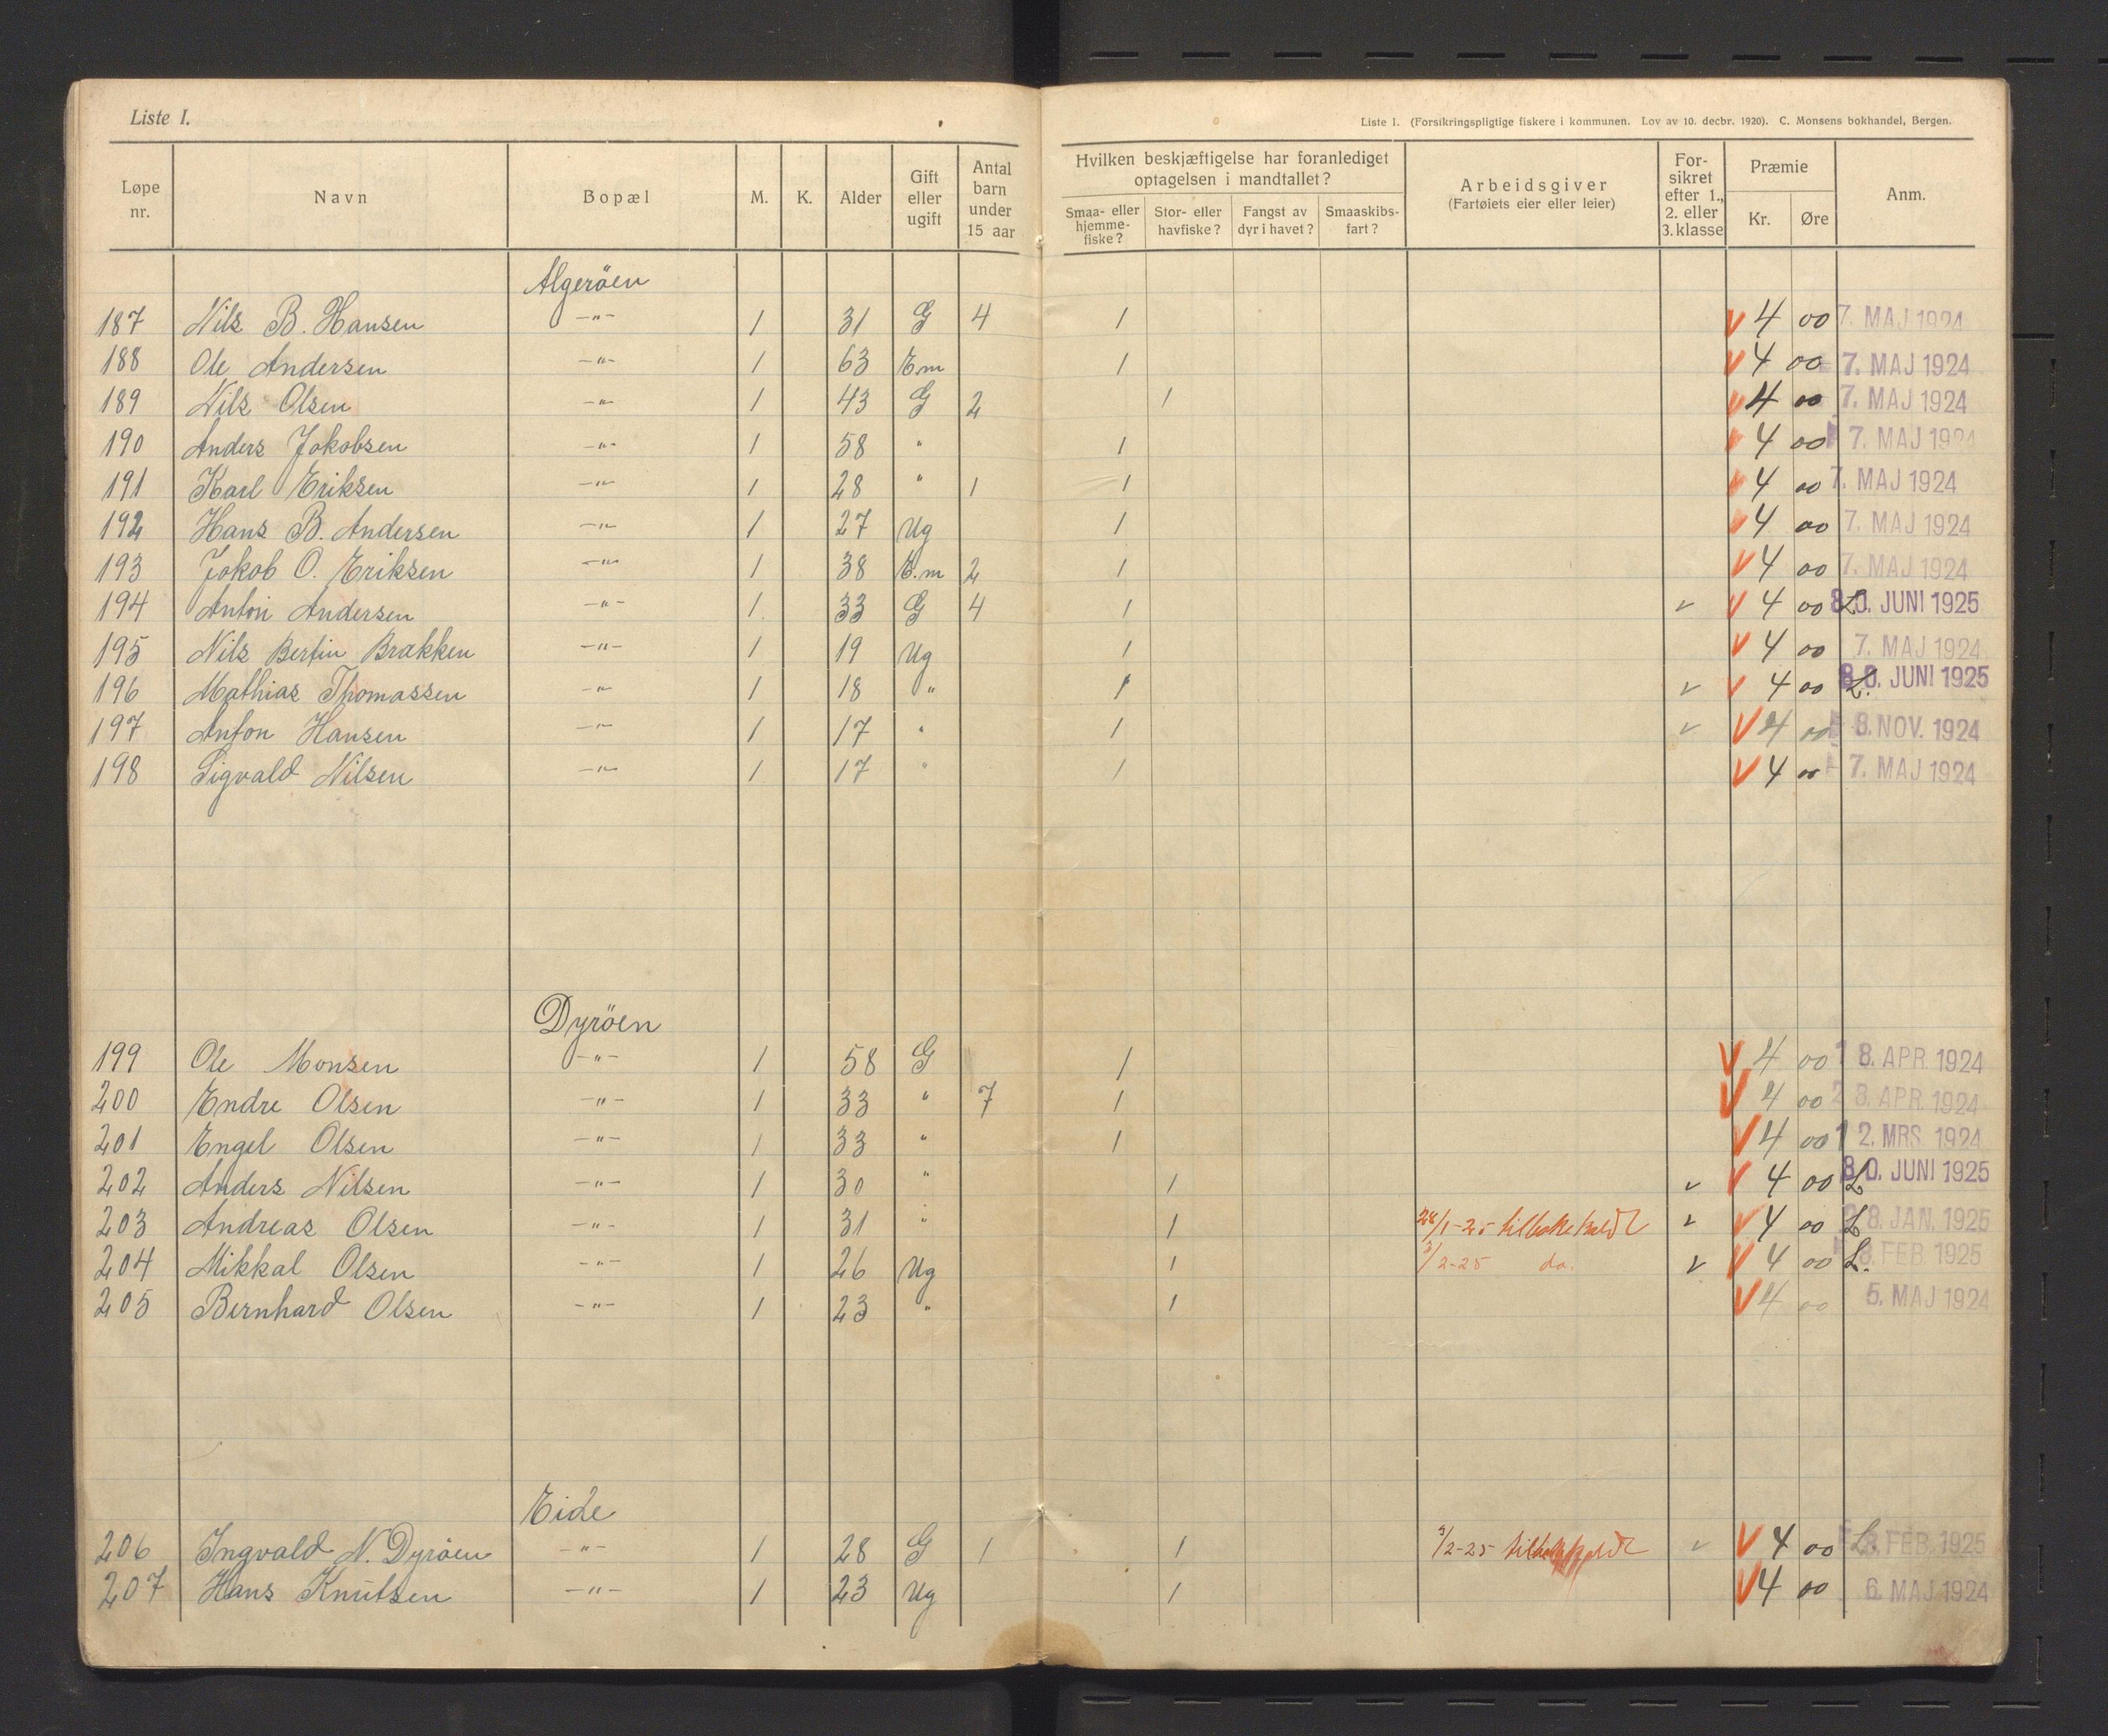 Liste I.
Liste 1. (Forsikringspligtige fiskere i kommunen. Lov av 10. decbr. 1920). C. Monsens bokhandel, Bergen.
Løpe nr. Navn Bopæl M. K. Alder Gift eller ugift Antal barn under 15 aar Hvilken beskjæftigelse har foranlediget optagelsen i mandtallet? Smaa- eller hjemme-fiske? Stor- eller havfiske? Fangst av dyr i havet? Smaaskibs-fart? Arbeidsgiver (Fartøiets eier eller leier) For-sikret efter 1., 2. eller 3. klasse Præmie Kr. Øre Anm.
Algeröen
187 Nils B. Hansen -"- 1 31 G 4 1 V 4 00 7. MAJ 1924
188 Ole Andersen -"- 1 63 E.m 1 V 4 00 7. MAJ 1924
189 Nils Olsen -"- 1 43 G 2 1 V 4 00 7. MAJ 1924
190 Anders Jakobsen -"- 1 58 " 1 V 4 00 7. MAJ 1924
191 Karl Eriksen -"- 1 28 " 1 1 V 4 00 7. MAJ 1924
192 Hans B. Andersen -"- 1 27 Ug 1 V 4 00 7. MAJ 1924
193 Jakob O. Eriksen -"- 1 38 E.m 2 1 V 4 00 7. MAJ 1924
194 Anton Andersen -"- 1 33 G 4 1 v V 4 00 L. JUNI 1925
195 Nils Bertin Brakken -"- 1 19 Ug 1 V 4 00 7. MAJ 1924
196 Mathias Thomassen -"- 1 18 " 1 v V 4 00 L. 30. JUNI 1925
197 Anton Hansen -"- 1 17 " 1 v V 4 00 8. NOV. 1924
198 Sigvald Nilsen -"- 1 17 " 1 V 4 00 7. MAJ 1924
Dyröen
199 Ole Monsen -"- 1 58 G 1 V 4 00 18. APR. 1924
200 Endre Olsen -"- 1 33 " 7 1 V 4 00 23. APR. 1924
201 Engel Olsen -"- 1 33 " 1 V 4 00 12. MRS. 1924
202 Anders Nilsen -"- 1 30 " 1 v V 4 00 L 30. JUNI 1925
203 Andreas Olsen -"- 1 31 " 1 28/1-25 tilbakekaldt v V 4 00 L 28. JAN. 1925
204 Mikkal Olsen -"- 1 26 Ug 1 3/2-25 do. v V 4 00 L. 3. FEB. 1925
205 Bernhard Olsen -"- 1 23 " 1 V 4 00 5. MAJ 1924
Eide
206 Ingvald N. Dyröen -"- 1 28 G 1 1 3/2-25 tilbakekaldt v V 4 00 L. 3. FEB. 1925
207 Hans Knutsen -"- 1 23 Ug 1 V 4 00 6. MAJ 1924